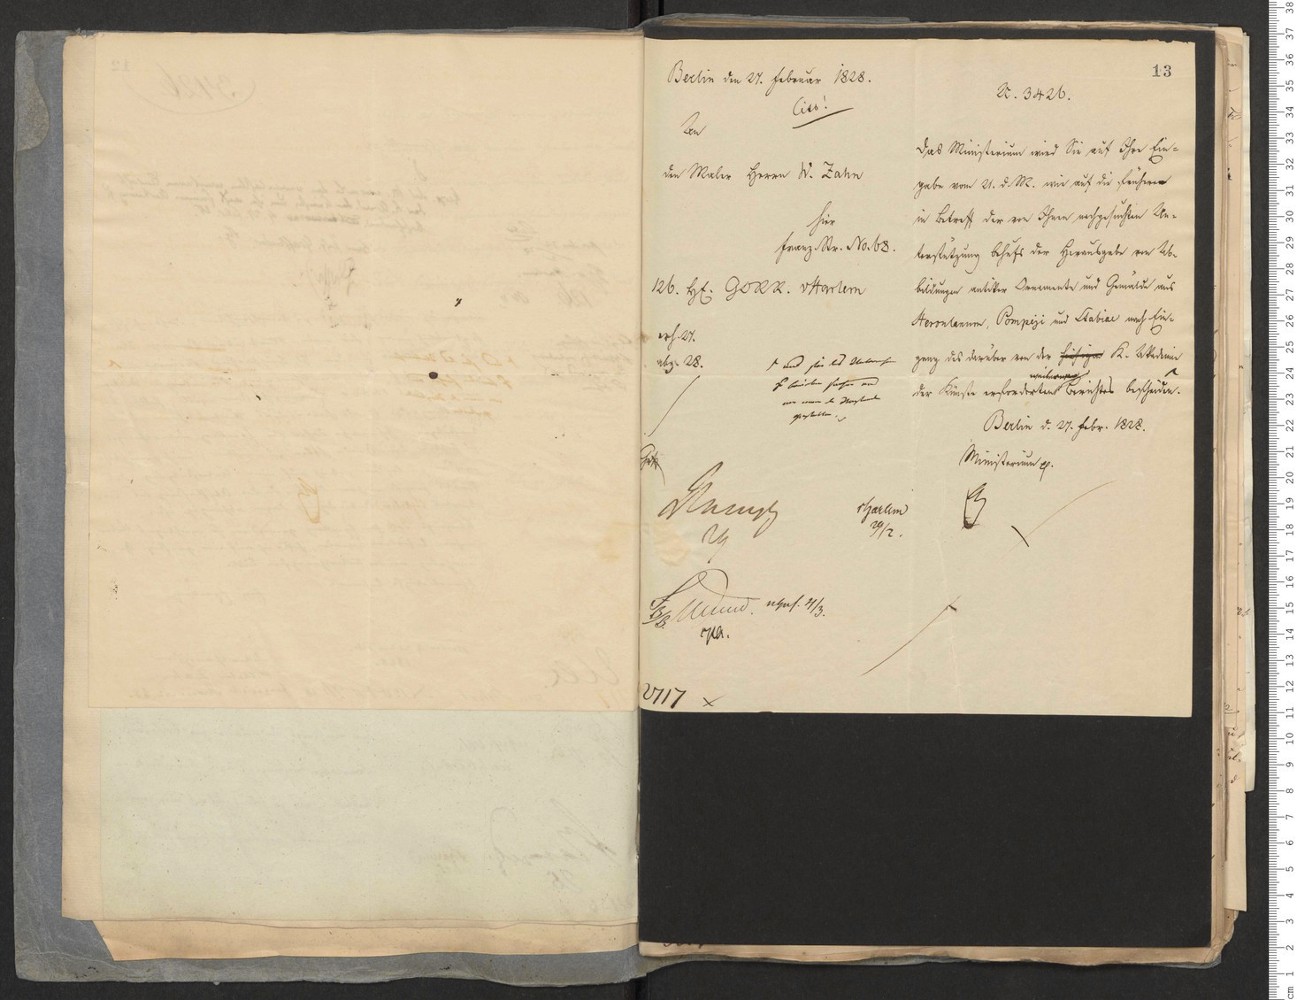 13
Berlin den 27. Februar 1828.
Cito!
An
den Maler Herrn W. Zahn
hier
Franz. Str. No. 63.
126. Hf. GORR. vHarlem
27.
abg. 28.
vHarlem
29/2.
4/3.
2717
N. 3426.
Das Ministerium wird Sie auf Ihre Ein-
gabe vom 21. d. M. wie auf die frühern
in Betreff der von Ihnen nachgesuchten Un-
terstützung behufs der Herausgabe von Ab-
bildungen antiker Ornamente und Gemälde aus
Herculanum, Pompeji und Stabiae nach Ein-
gang des darüber von der hiesigen K. Akademie
der Künste erforderten Berichtes bescheiden.
Berlin d. 27. Febr. 1828.
Ministerium p.